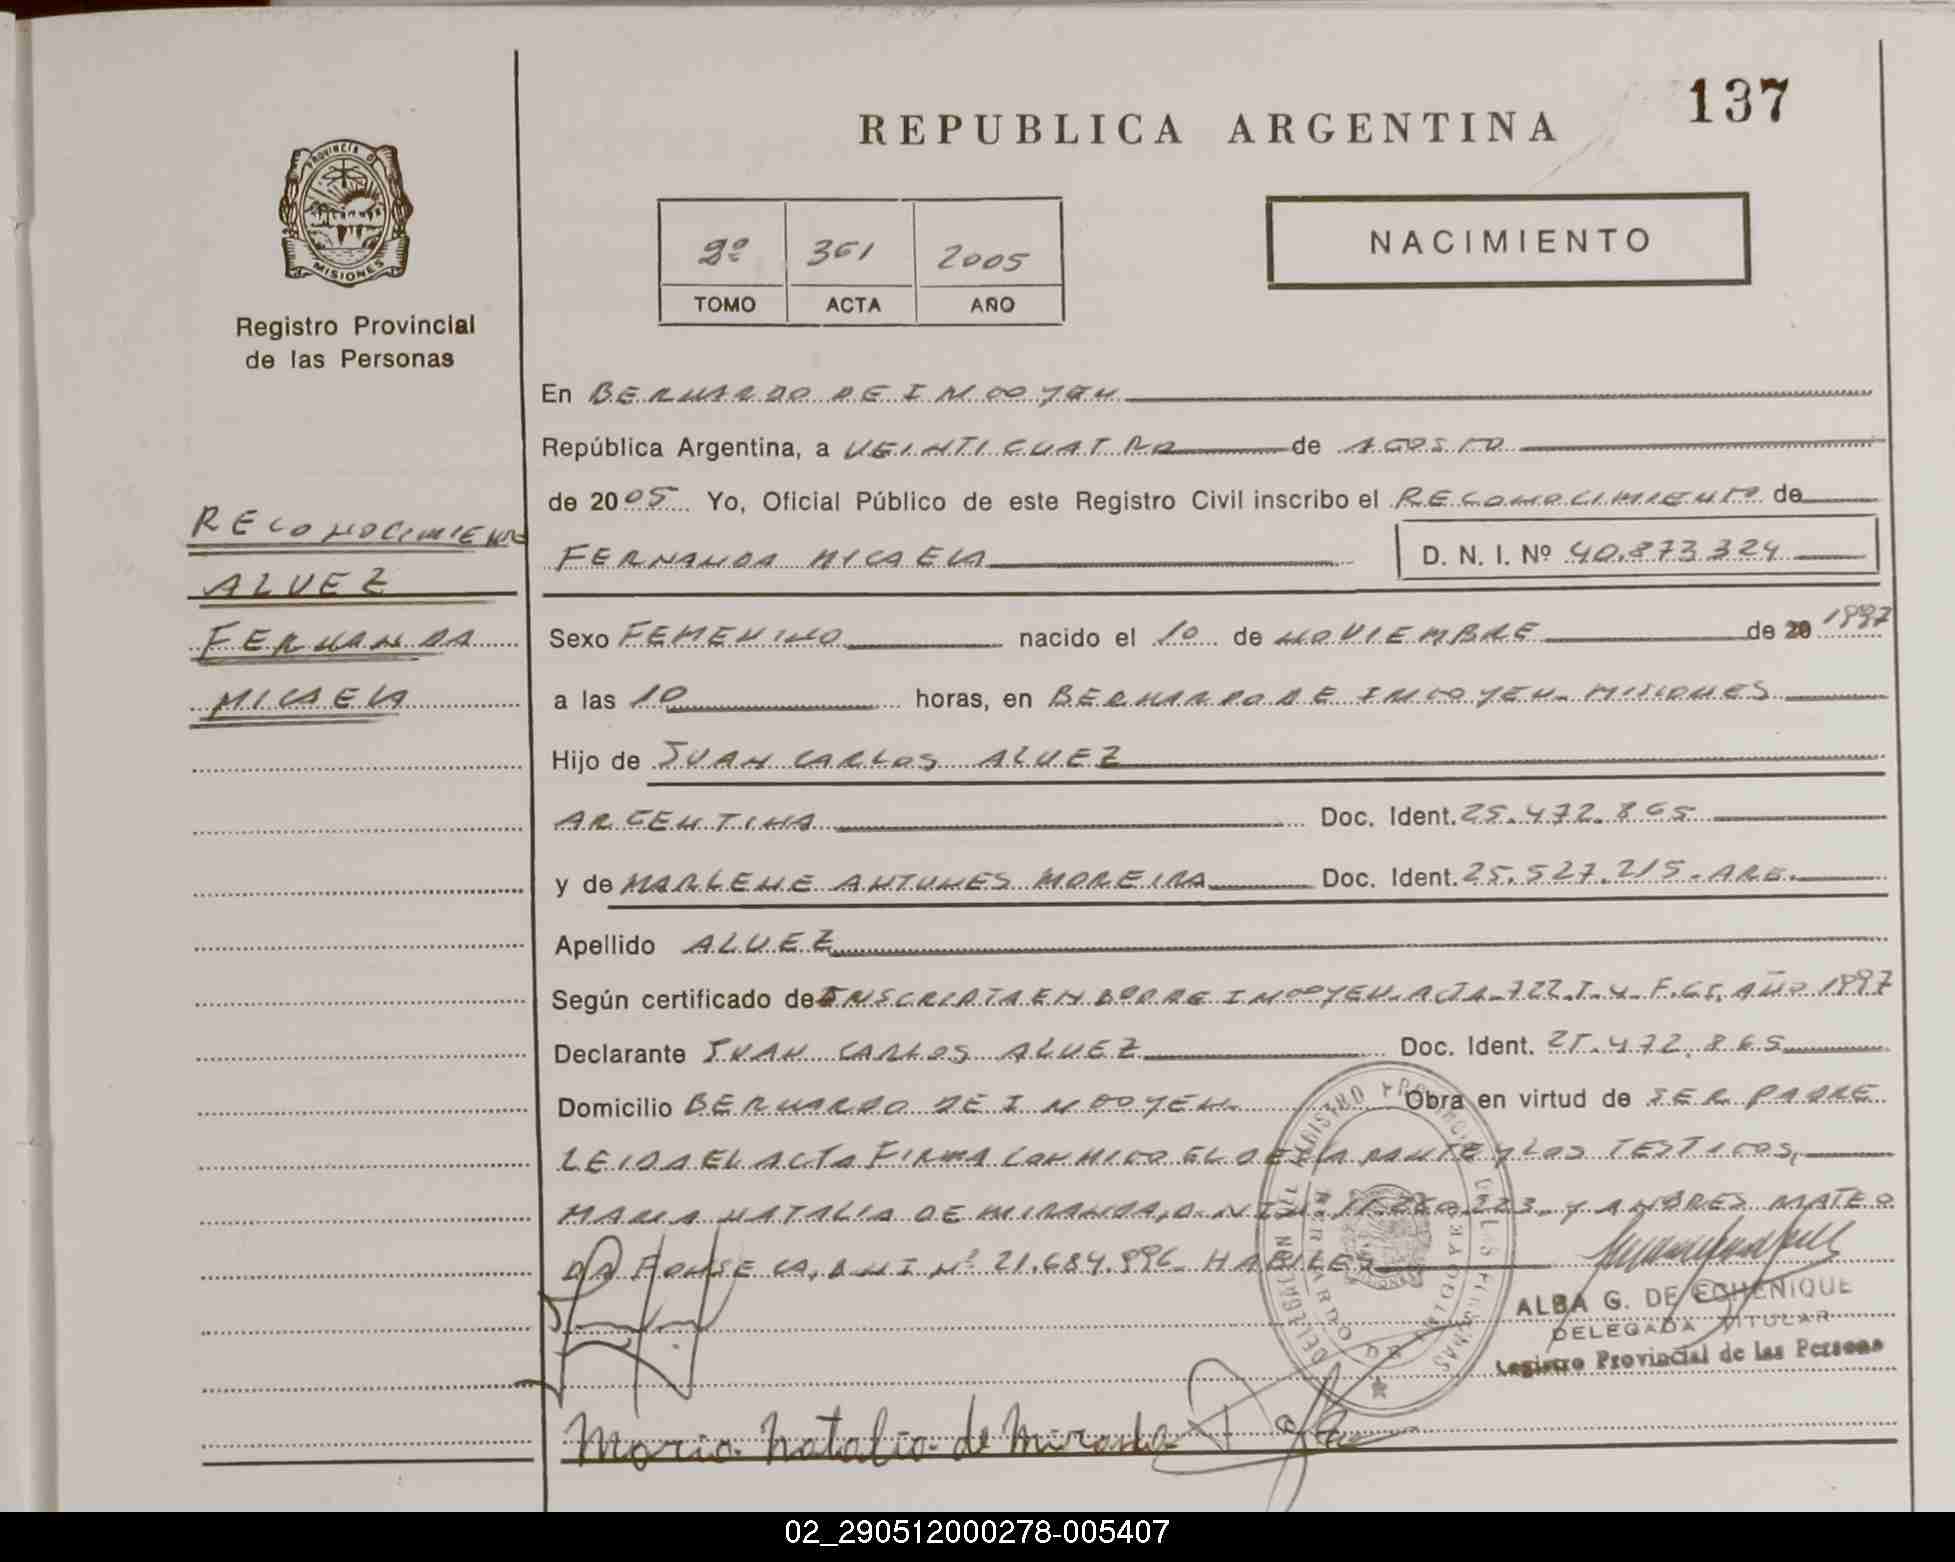 137
REPUBLICA ARGENTINA
PROVINCIA D
MISIONES
Registro Provincial
de las Personas
2º 361 2005
TOMO ACTA AÑO
NACIMIENTO
RECONOCIMIENTO
ALVEZ
FERNANDA
MICAELA
En BERNARDO DE IRIGOYEN
República Argentina, a VEINTICUATRO de AGOSTO
de 2005 Yo, Oficial Público de este Registro Civil inscribo el RECONOCIMIENTO de
FERNANDA MICAELA D. N. I. Nº 40.873324
Sexo FEMENINO nacido el 10 de NOVIEMBRE de 20 1997
a las 10 horas, en BERNARDO DE IRIGOYEN - MISIONES
Hijo de JUAN CARLOS ALVEZ
ARGENTINA Doc. Ident. 25.472.865
y de MARLENE ANTUNES MOREIRA Doc. Ident. 25.527.215 - ARG.
Apellido ALVEZ
Según certificado de INSCRIPTA EN BDO DE IRIGOYEN - ACTA - 722. T. 4. AÑO 1997
Declarante JUAN CARLOS ALVEZ Doc. Ident. 25.472.865
Domicilio BERNARDO DE IRIGOYEN Obra en virtud de SER PADRE
LEIDA EL ACTA FIRMA CONMIGO EL DECLARANTE Y LOS TESTIGOS,
MARIA NATALIA DE MIRANDA, D.N.I. Nº Y ANDRES MATEO
DA FONSECA, DNI Nº 21.684.996 HABILES
ALBA G. DE ECHENIQUE
DELEGADA TITULAR
Registro Provincial de las Persona
REGISTRO PROVINCIAL DE LAS PERSONAS
DELEGACION
BERNARDO DE IRIGOYEN
Maria Natalia de Miranda
02_290512000278-005407